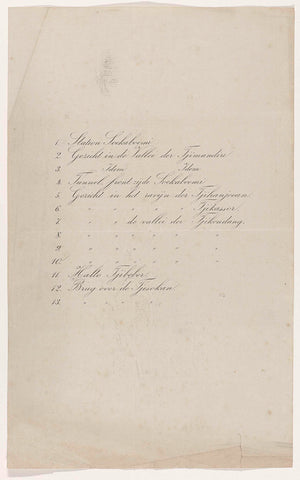 1. Station Soekaboemi
2. Gezicht in de Vallei der Tjimandiri
3. Idem Idem
4. Tunnel front zijde Soekaboemi
5. Gezicht in het ravijn der Tjikanjavan
6. " " " " " Tjikassor
7. " " " de vallei der Tjikoendang.
8. " " " " " "
9. " " " " " "
10. " " " " " "
11. Halte Tjibeber
12. Brug over de Tjisokan
13. " " " "